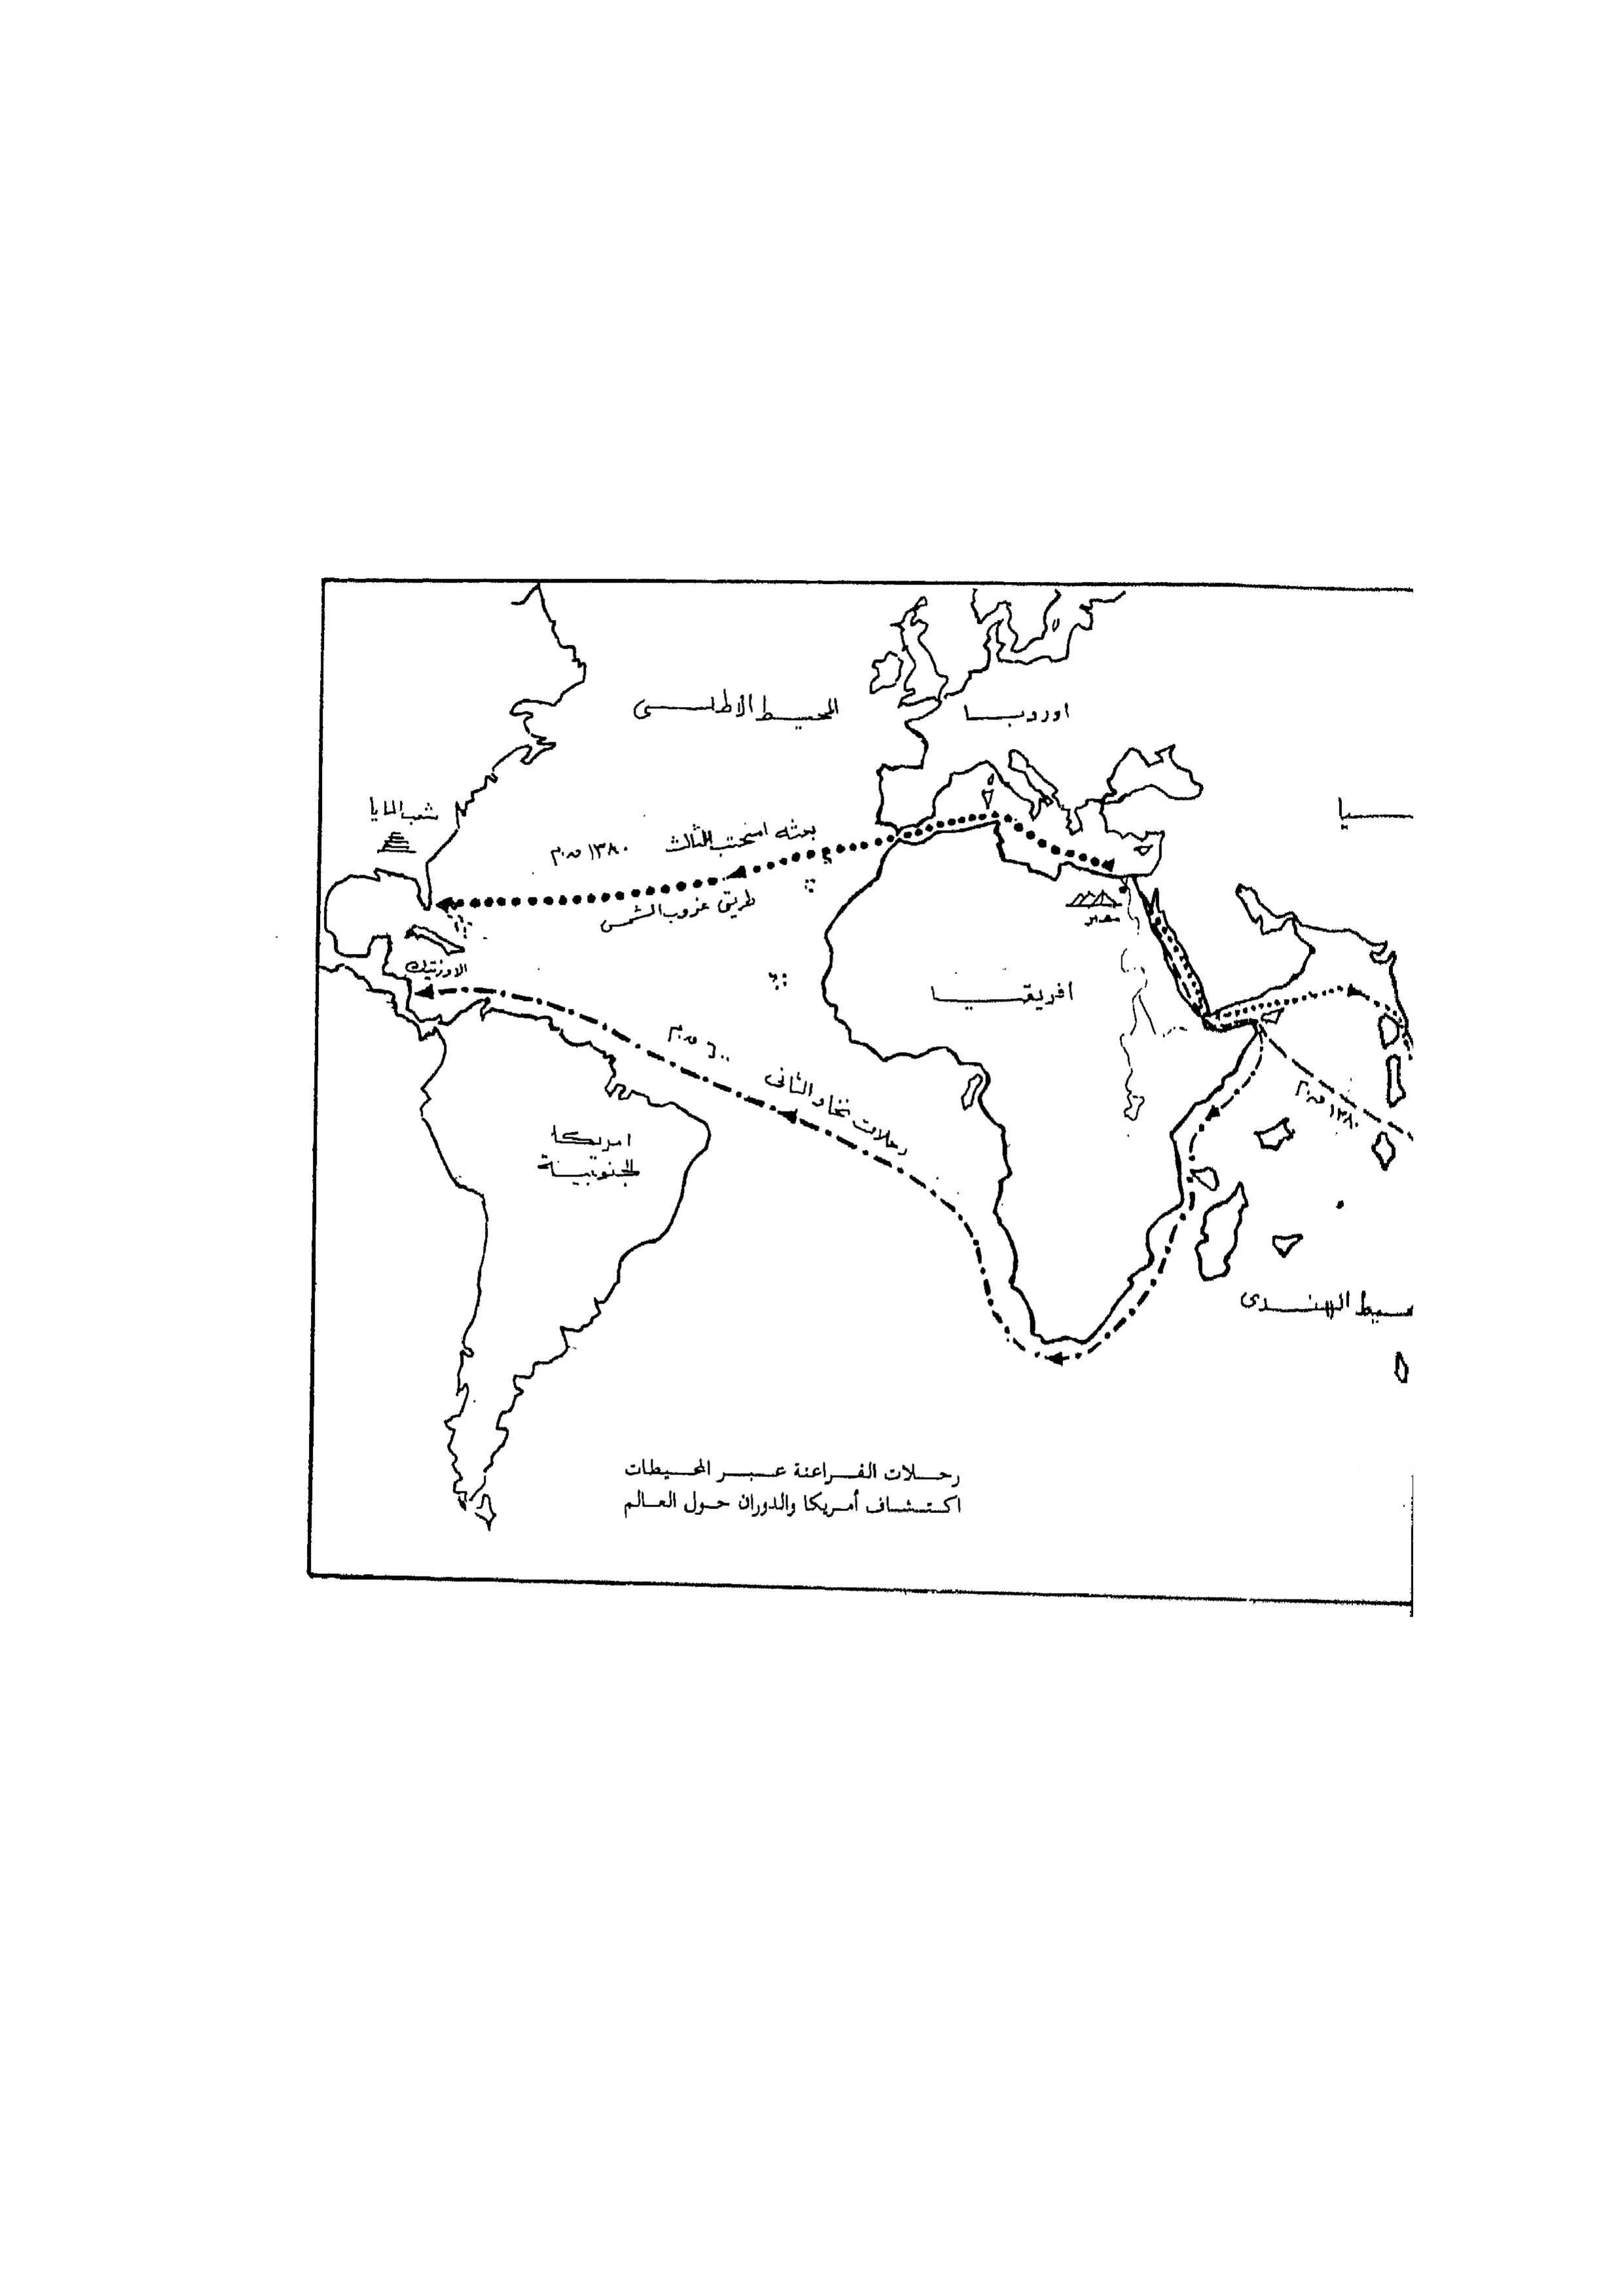 المحيط الأطلسى
اوروبا
سيا
شعب المايا
بعثه امنحتب الثالث ١٣٨٠ ق.م
طريق غروب الشمس
مصر
الاوزتيك
أفريقيا
رحلات نخاو الثانى ٦٠٠ ق.م
١٣٨٠ ق.م
امريكا
الجنوبية
سيط الهندى
رحلات الفراعنة عبر المحيطات
اكتشاف أمريكا والدوران حول العالم